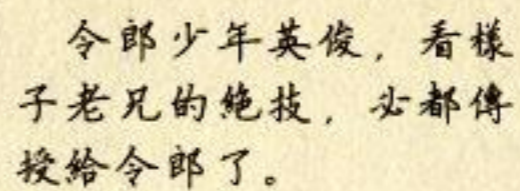 令郎少年英俊，看樣
子老兄的絶技，必都傳
授給令郎了。